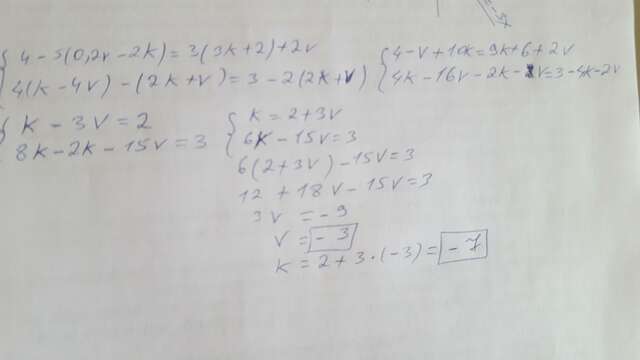 4 - 5(0,2v - 2k) = 3(3k + 2) + 2v
4(k - 4v) - (2k + v) = 3 - 2(2k + v)
4 - v + 10k = 9k + 6 + 2v
4k - 16v - 2k - v = 3 - 4k - 2v
k - 3v = 2
8k - 2k - 15v = 3
k = 2 + 3v
6k - 15v = 3
6(2 + 3v) - 15v = 3
12 + 18v - 15v = 3
3v = -9
v = -3
k = 2 + 3 · (-3) = -7